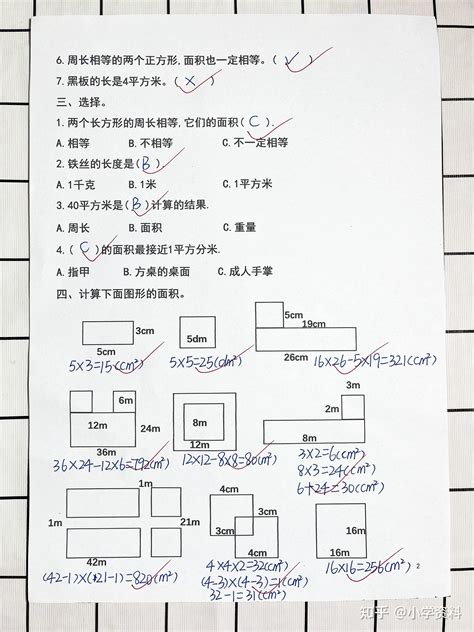 6. 周长相等的两个正方形,面积也一定相等。( ✓ )
7. 黑板的长是4平方米。( × )
三、选择。
1. 两个长方形的周长相等,它们的面积( C ).
A. 相等 B. 不相等 C. 不一定相等
2. 铁丝的长度是( B ).
A. 1千克 B. 1米 C. 1平方米
3. 40平方米是( B )计算的结果.
A. 周长 B. 面积 C. 重量
4. ( C )的面积最接近1平方分米.
A. 指甲 B. 方桌的桌面 C. 成人手掌
四、计算下面图形的面积。
3cm
5cm
5×3=15(cm²)
5dm
5×5=25(dm²)
5cm
19cm
26cm
16×26-5×19=321(cm²)
6m
12m
24m
36m
36×24-12×6=792(cm²)
8m
12m
12×12-8×8=80(m²)
3m
2m
8m
3×2=6(cm²)
8×3=24(cm²)
6+24=30(cm²)
1m
1m
21m
42m
(42-1)×(21-1)=820(m²)
4cm
3cm
3cm
4cm
4×4×2=32(cm²)
(4-3)×(4-3)=1(cm²)
32-1=31(cm²)
16m
16m
16×16=256(cm²)
2
知乎 @小学资料